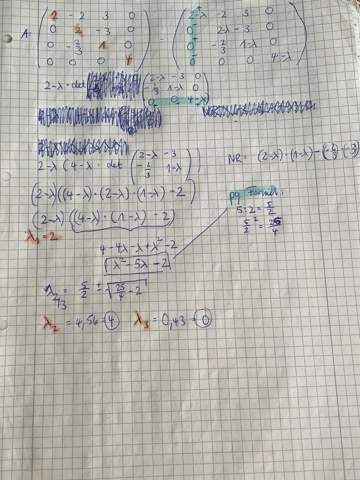 2 -2 3 0 2-λ -2 3 0
A= 0 2 -3 0 - 0 2-λ -3 0
0 -2/3 1 0 0 -2/3 1-λ 0
0 0 0 4 0 0 0 4-λ
2-λ · det
2-λ -3 0
-2/3 1-λ 0
0 0 4-λ
2-λ (4-λ · det
2-λ -3
-2/3 1-λ
NR: (2-λ)·(1-λ)-
(2-λ)((4-λ)·(2-λ)·(1-λ)-2)
(2-λ)((4-λ)·(1-λ)-2)
λ₁=2
pq Formel:
5:2=5/2
5/2²=25/4
4-4λ-λ+λ²-2
λ²-5λ+2
λ2/3= 5/2 ± √25/4-2
λ₂=4,56→4 λ₃=0,43→0